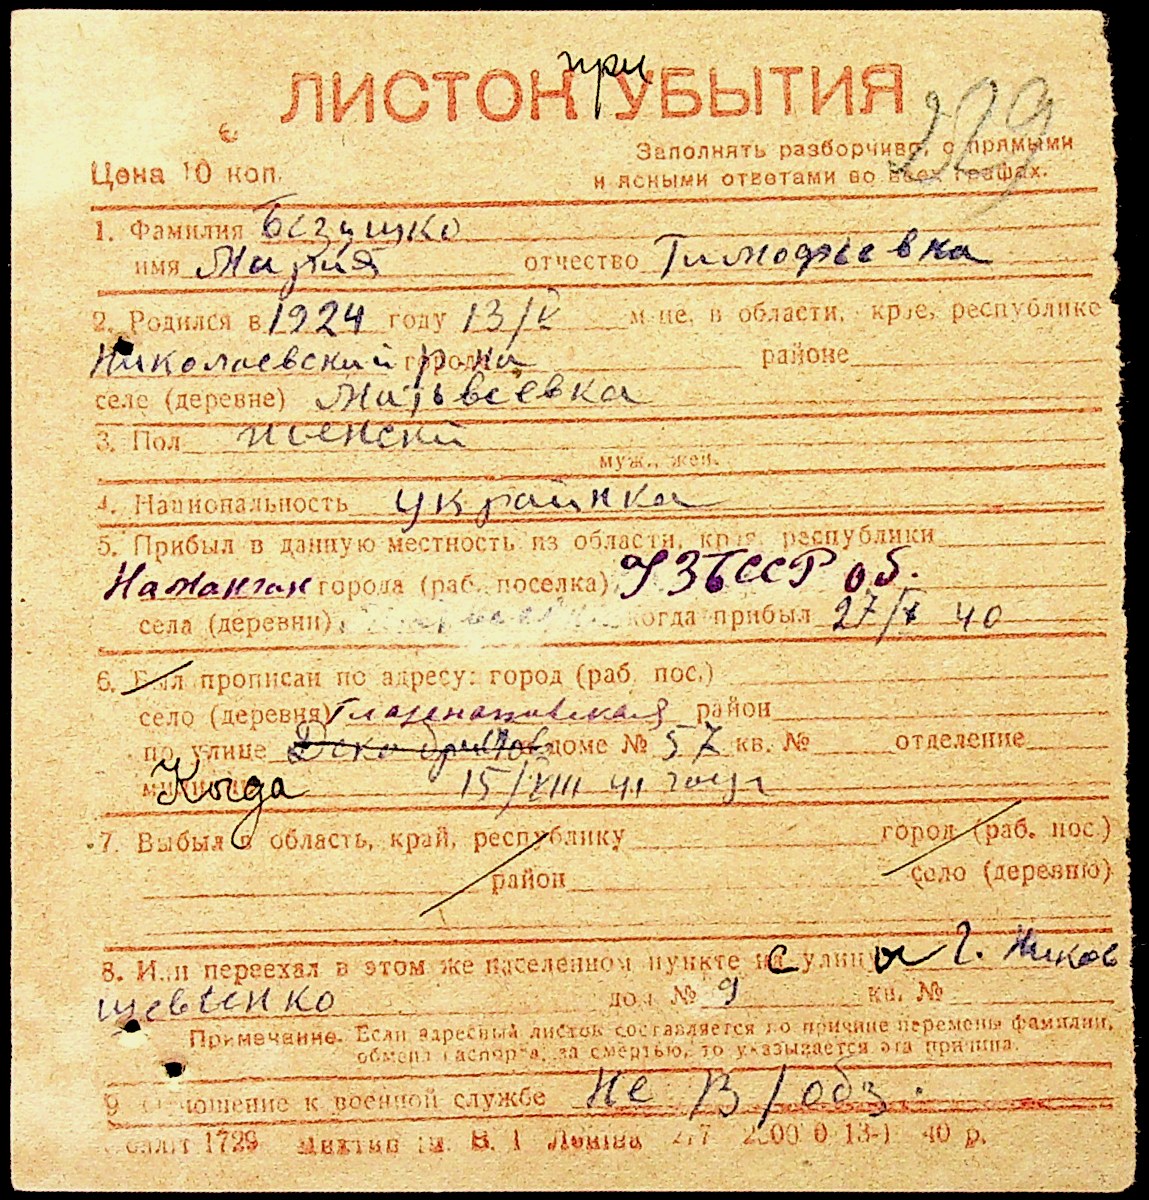 при
ЛИСТОК УБЫТИЯ
229
Цена 10 коп.
Заполнять разборчиво, с прямыми
и ясными ответами во всех графах.
1. Фамилия Безушко
имя Мария отчество Тимофеевна
2. Родился в 1924 году 13/V м-це, в области, крае, республике
Николаевский города р-на районе
селе (деревне) Матьвеевка
3. Пол женски
муж., жен.
4. Национальность украинка
5. Прибыл в данную местность из области, края, республики
Наманган города (раб. поселка) УзбССР об.
села (деревни) когда прибыл 27/X 40
6. Был прописан по адресу: город (раб. пос.)
село (деревня) район
по улице Декабристов доме № 57 кв. № отделение
Когда 15/VIII 41 году
7. Выбыл в область, край, республику город (раб. пос.)
район село (деревню)
8. Или переехал в этом же населенном пункте с улицы г. Никол
Шевченко дом № 9 кв. №
Примечание. Если адресный листок составляется по причине перемены фамилии,
обмена паспорта, за смертью, то указывается эта причина.
9. Отношение к военной службе не в/обз.
1729 В. І. Леніна 40 р.